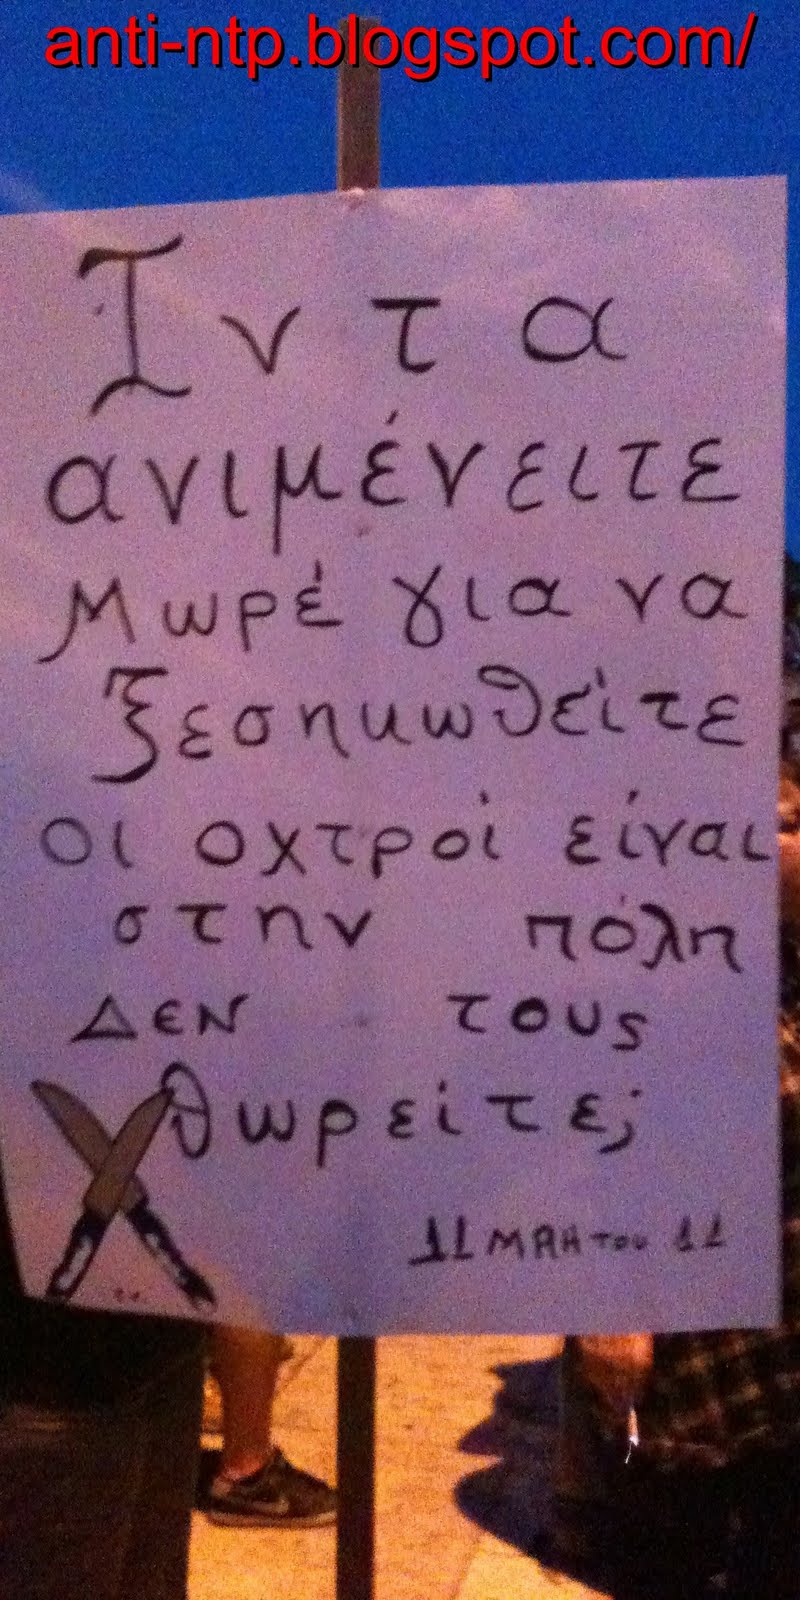 anti-ntp.blogspot.com/
Ίντα
ανιμένειτε
Μωρέ για να
ξεσηκωθείτε
οι οχτροί είναι
στην πόλη
ΔΕΝ τους
θωρείτε;
11 ΜΑΗ του 11